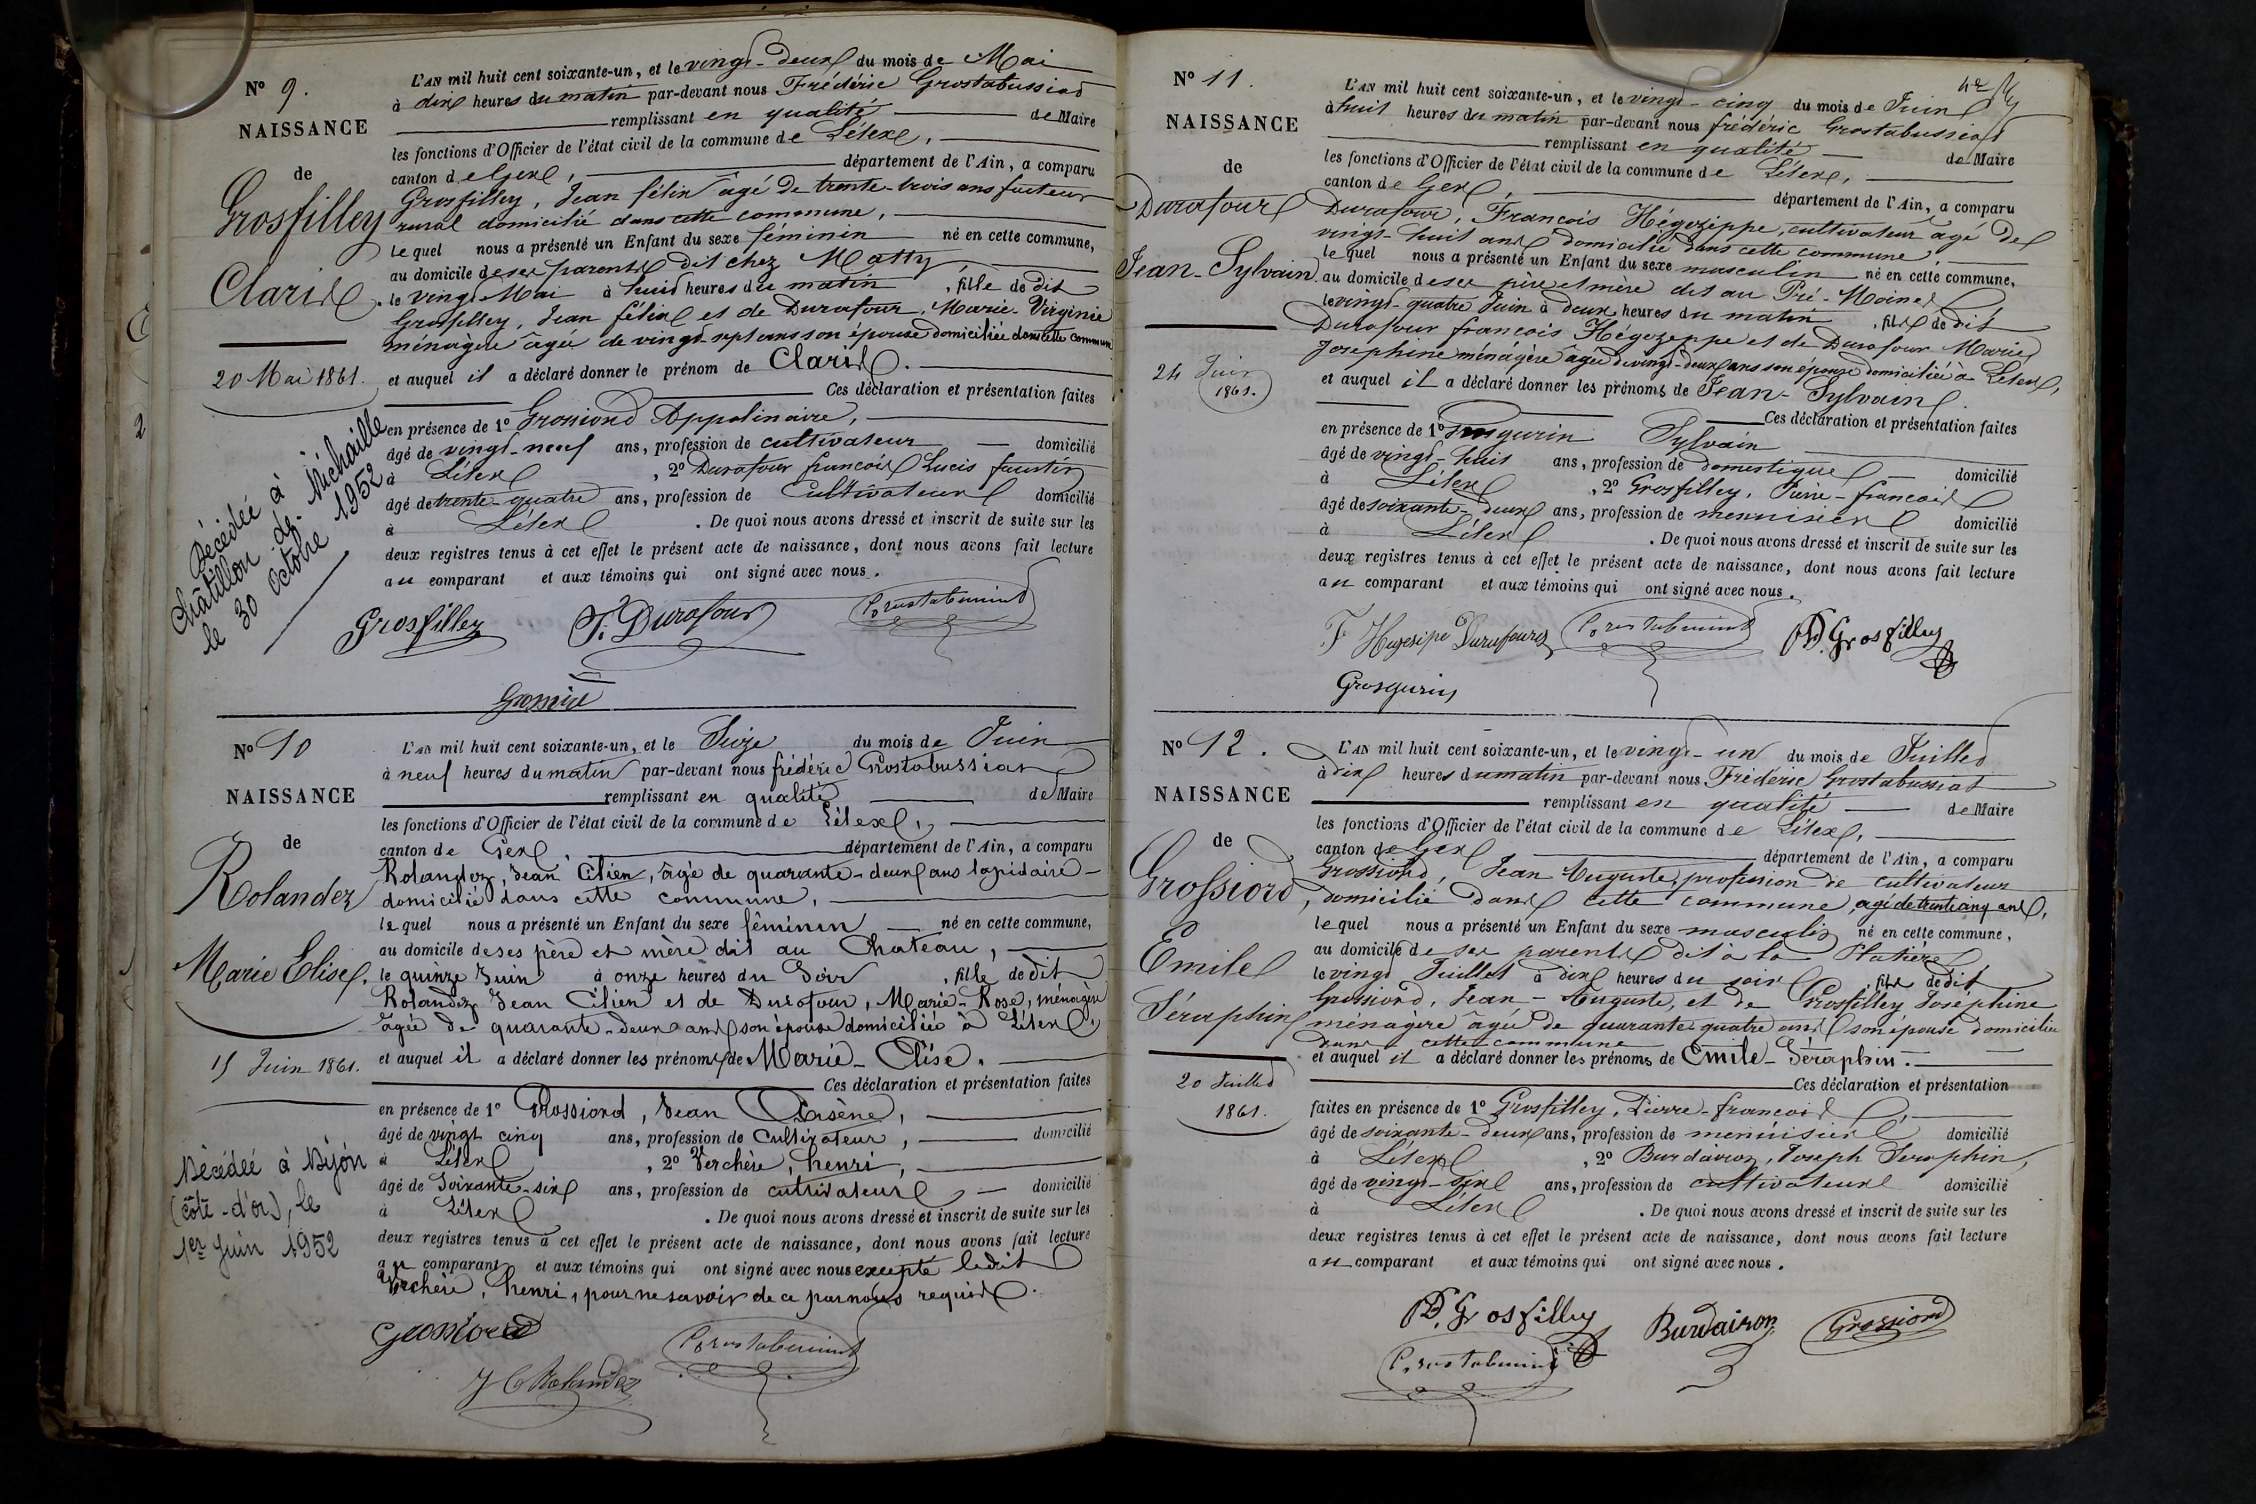 N° 9.
NAISSANCE
de
Grosfilley
Claris
20 Mai 1861.
Décédée à
Châtillon de Michaille
le 30 Octobre 1952
L'AN mil huit cent soixante-un, et le vingt-deux du mois de Mai
à dix heures du matin par-devant nous Frédéric Grostabussiat
remplissant en qualité de Maire
les fonctions d'Officier de l'état civil de la commune de Lélex,
canton de Gex, département de l'Ain, a comparu
Grosfilley, Jean félix âgé de trente-trois ans facteur
rural domicilié dans cette commune,
lequel nous a présenté un Enfant du sexe féminin né en cette commune,
au domicile de ses parents dit chez Matty
le vingt Mai à huit heures du matin, fille de dit
Grosfilley, Jean félix et de Durafour, Marie-Virginie
ménagère âgée de vingt-sept ans son épouse domiciliée dans cette commune
et auquel il a déclaré donner le prénom de Claris.
Ces déclaration et présentation faites
en présence de 1° Grossiord Appolinaire,
âgé de vingt-neuf ans, profession de cultivateur domicilié
à Lélex, 2° Durafour françois Lucis faustin
âgé de trente-quatre ans, profession de Cultivateur domicilié
à Lélex. De quoi nous avons dressé et inscrit de suite sur les
deux registres tenus à cet effet le présent acte de naissance, dont nous avons fait lecture
au comparant et aux témoins qui ont signé avec nous.
Grosfilley F. Durafour Grostabussiat
Grossiord
N° 10
NAISSANCE
de
Rolandez
Marie Elise.
15 Juin 1861.
Décédée à Dijon
(côte-d'or), le
1er Juin 1952
L'AN mil huit cent soixante-un, et le Seize du mois de Juin
à neuf heures du matin par-devant nous frédéric Grostabussiat
remplissant en qualité de Maire
les fonctions d'Officier de l'état civil de la commune de Lélex,
canton de Gex, département de l'Ain, a comparu
Rolandez, Jean Cilien, âgé de quarante-deux ans lapidaire
domicilié dans cette commune,
lequel nous a présenté un Enfant du sexe féminin né en cette commune,
au domicile de ses père et mère dit au Chateau,
le quinze Juin à onze heures du Soir, fille de dit
Rolandez Jean Cilien et de Durafour, Marie-Rose, ménagère
âgée de quarante-deux ans son épouse domiciliée à Lélex,
et auquel il a déclaré donner les prénoms de Marie-Elise.
Ces déclaration et présentation faites
en présence de 1° Grossiord, Jean Arsène,
âgé de vingt cinq ans, profession de Cultivateur, domicilié
à Lélex, 2° Verchère, henri,
âgé de Soixante-six ans, profession de cultivateur domicilié
à Lélex. De quoi nous avons dressé et inscrit de suite sur les
deux registres tenus à cet effet le présent acte de naissance, dont nous avons fait lecture
au comparant et aux témoins qui ont signé avec nous excepté ledit
Verchère, henri, pour ne savoir de ce par nous requis.
Grossiord
J C Rolandez Grostabussiat
N° 11.
NAISSANCE
de
Durafour
Jean-Sylvain
24 Juin
1861.
L'AN mil huit cent soixante-un, et le vingt-cinq du mois de Juin
à huit heures du matin par-devant nous frédéric Grostabussiat
remplissant en qualité de Maire
les fonctions d'Officier de l'état civil de la commune de Lélex,
canton de Gex, département de l'Ain, a comparu
Durafour, François Hégozippe, cultivateur âgé de
vingt-huit ans domicilié dans cette commune,
lequel nous a présenté un Enfant du sexe masculin né en cette commune,
au domicile de ses père et mère dit au Pré-Moine
le vingt-quatre Juin à deux heures du matin, fils de dit
Durafour françois Hégozeppe et de Durafour Marie
Josephine ménagère âgée de vingt-deux ans son épouse domiciliée à Lélex,
et auquel il a déclaré donner les prénoms de Jean-Sylvain.
Ces déclaration et présentation faites
en présence de 1° Grosgurin Sylvain
âgé de vingt-huit ans, profession de domestique domicilié
à Lélex, 2° Grosfilley, Pierre-françois
âgé de soixante-deux ans, profession de menuisier domicilié
à Lélex. De quoi nous avons dressé et inscrit de suite sur les
deux registres tenus à cet effet le présent acte de naissance, dont nous avons fait lecture
au comparant et aux témoins qui ont signé avec nous.
F Hegesipe Durafourg Grostabussiat P.F. Grosfilley
Grosgurin
N° 12.
NAISSANCE
de
Grossiord,
Emile
Séraphin
20 Juillet
1861.
L'AN mil huit cent soixante-un, et le vingt-un du mois de Juillet
à dix heures du matin par-devant nous Frédéric Grostabussiat
remplissant en qualité de Maire
les fonctions d'Officier de l'état civil de la commune de Lélex,
canton de Gex, département de l'Ain, a comparu
Grossiord, Jean Auguste, profession de cultivateur
domicilié dans cette commune, agé de trente cinq ans,
lequel nous a présenté un Enfant du sexe masculin né en cette commune,
au domicile de ses parents dit à la
le vingt Juillet à dix heures du soir, fils de dit
Grossiord, Jean-Auguste, et de Grosfilley Joséphine
ménagère âgée de quarante quatre ans son épouse domiciliée
dans cette commune
et auquel il a déclaré donner les prénoms de Emile-Séraphin.
Ces déclaration et présentation
faites en présence de 1° Grosfilley, Pierre-françois,
âgé de soixante-deux ans, profession de menuisier domicilié
à Lélex, 2° Burdairon, Joseph Seraphin,
âgé de vingt-six ans, profession de cultivateur domicilié
à Lélex. De quoi nous avons dressé et inscrit de suite sur les
deux registres tenus à cet effet le présent acte de naissance, dont nous avons fait lecture
au comparant et aux témoins qui ont signé avec nous.
P.F. Grosfilley Burdairon Grossiord
Grostabussiat